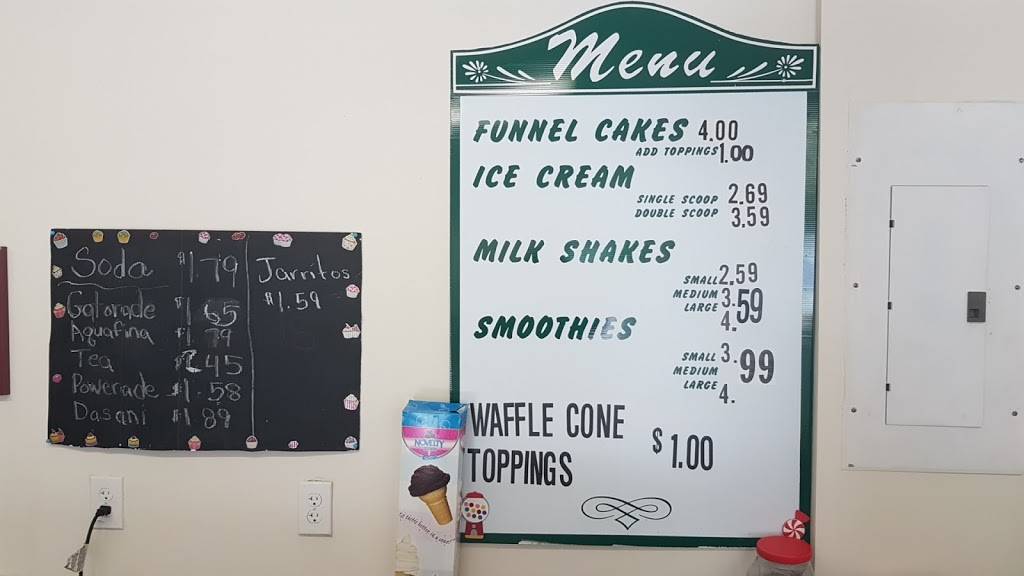 Menu
FUNNEL CAKES 4.00
ADD TOPPINGS 1.00
ICE CREAM
SINGLE SCOOP 2.69
DOUBLE SCOOP 3.59
MILK SHAKES
SMALL 2.59
MEDIUM 3.59
LARGE 4.
SMOOTHIES
SMALL 3.
MEDIUM 99
LARGE 4.
WAFFLE CONE
TOPPINGS $1.00
Soda $1.79
Gatorade $1.65
Aquafina $1.79
Tea 45
Powerade $1.58
Dasani $1.89
Jarritos
$1.59
NOVELTY